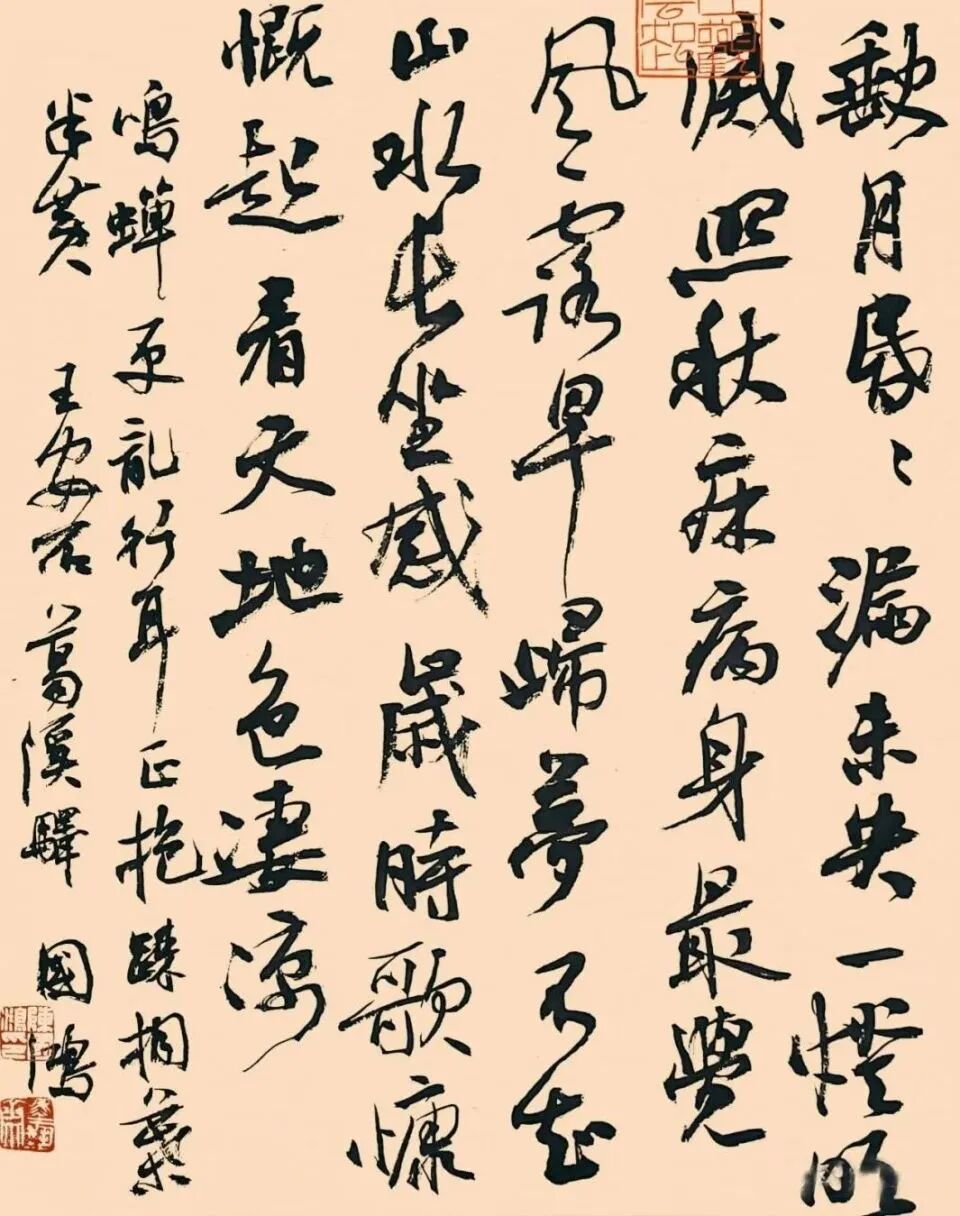 缺月昏〻漏未央一燈明
滅照秋床病身最覺
風露早歸夢不知
山水長坐感歲時歌慷
慨起看天地色淒涼
鳴蟬更亂行耳正抱疎桐葉
半黄 王安石葛溪驛 國鴻